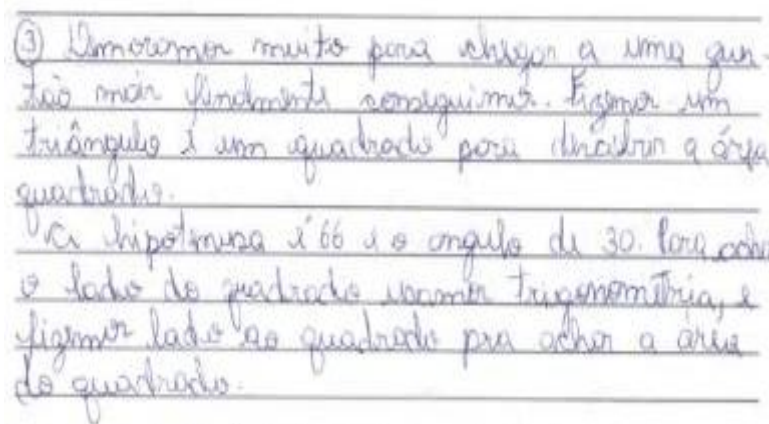 ③ Demoramos muito para chegar a uma ques-
tão mais finalmente conseguimos. Fizemos um
triângulo e um quadrado para descobrir a área
quadrado.
A hipotenusa é 66 e o angulo de 30. Para acha
o lado do quadrado usamos trigonométria, e
fizemos lado ao quadrado pra achar a area
do quadrado.